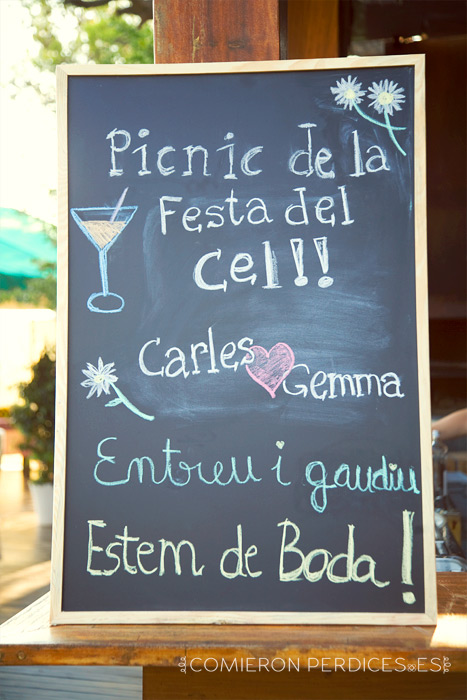 Picnic de la
Festa del
Cel!!
Carles
Gemma
Entreu i gaudiu
Estem de Boda!
COMIERON PERDICES.ES